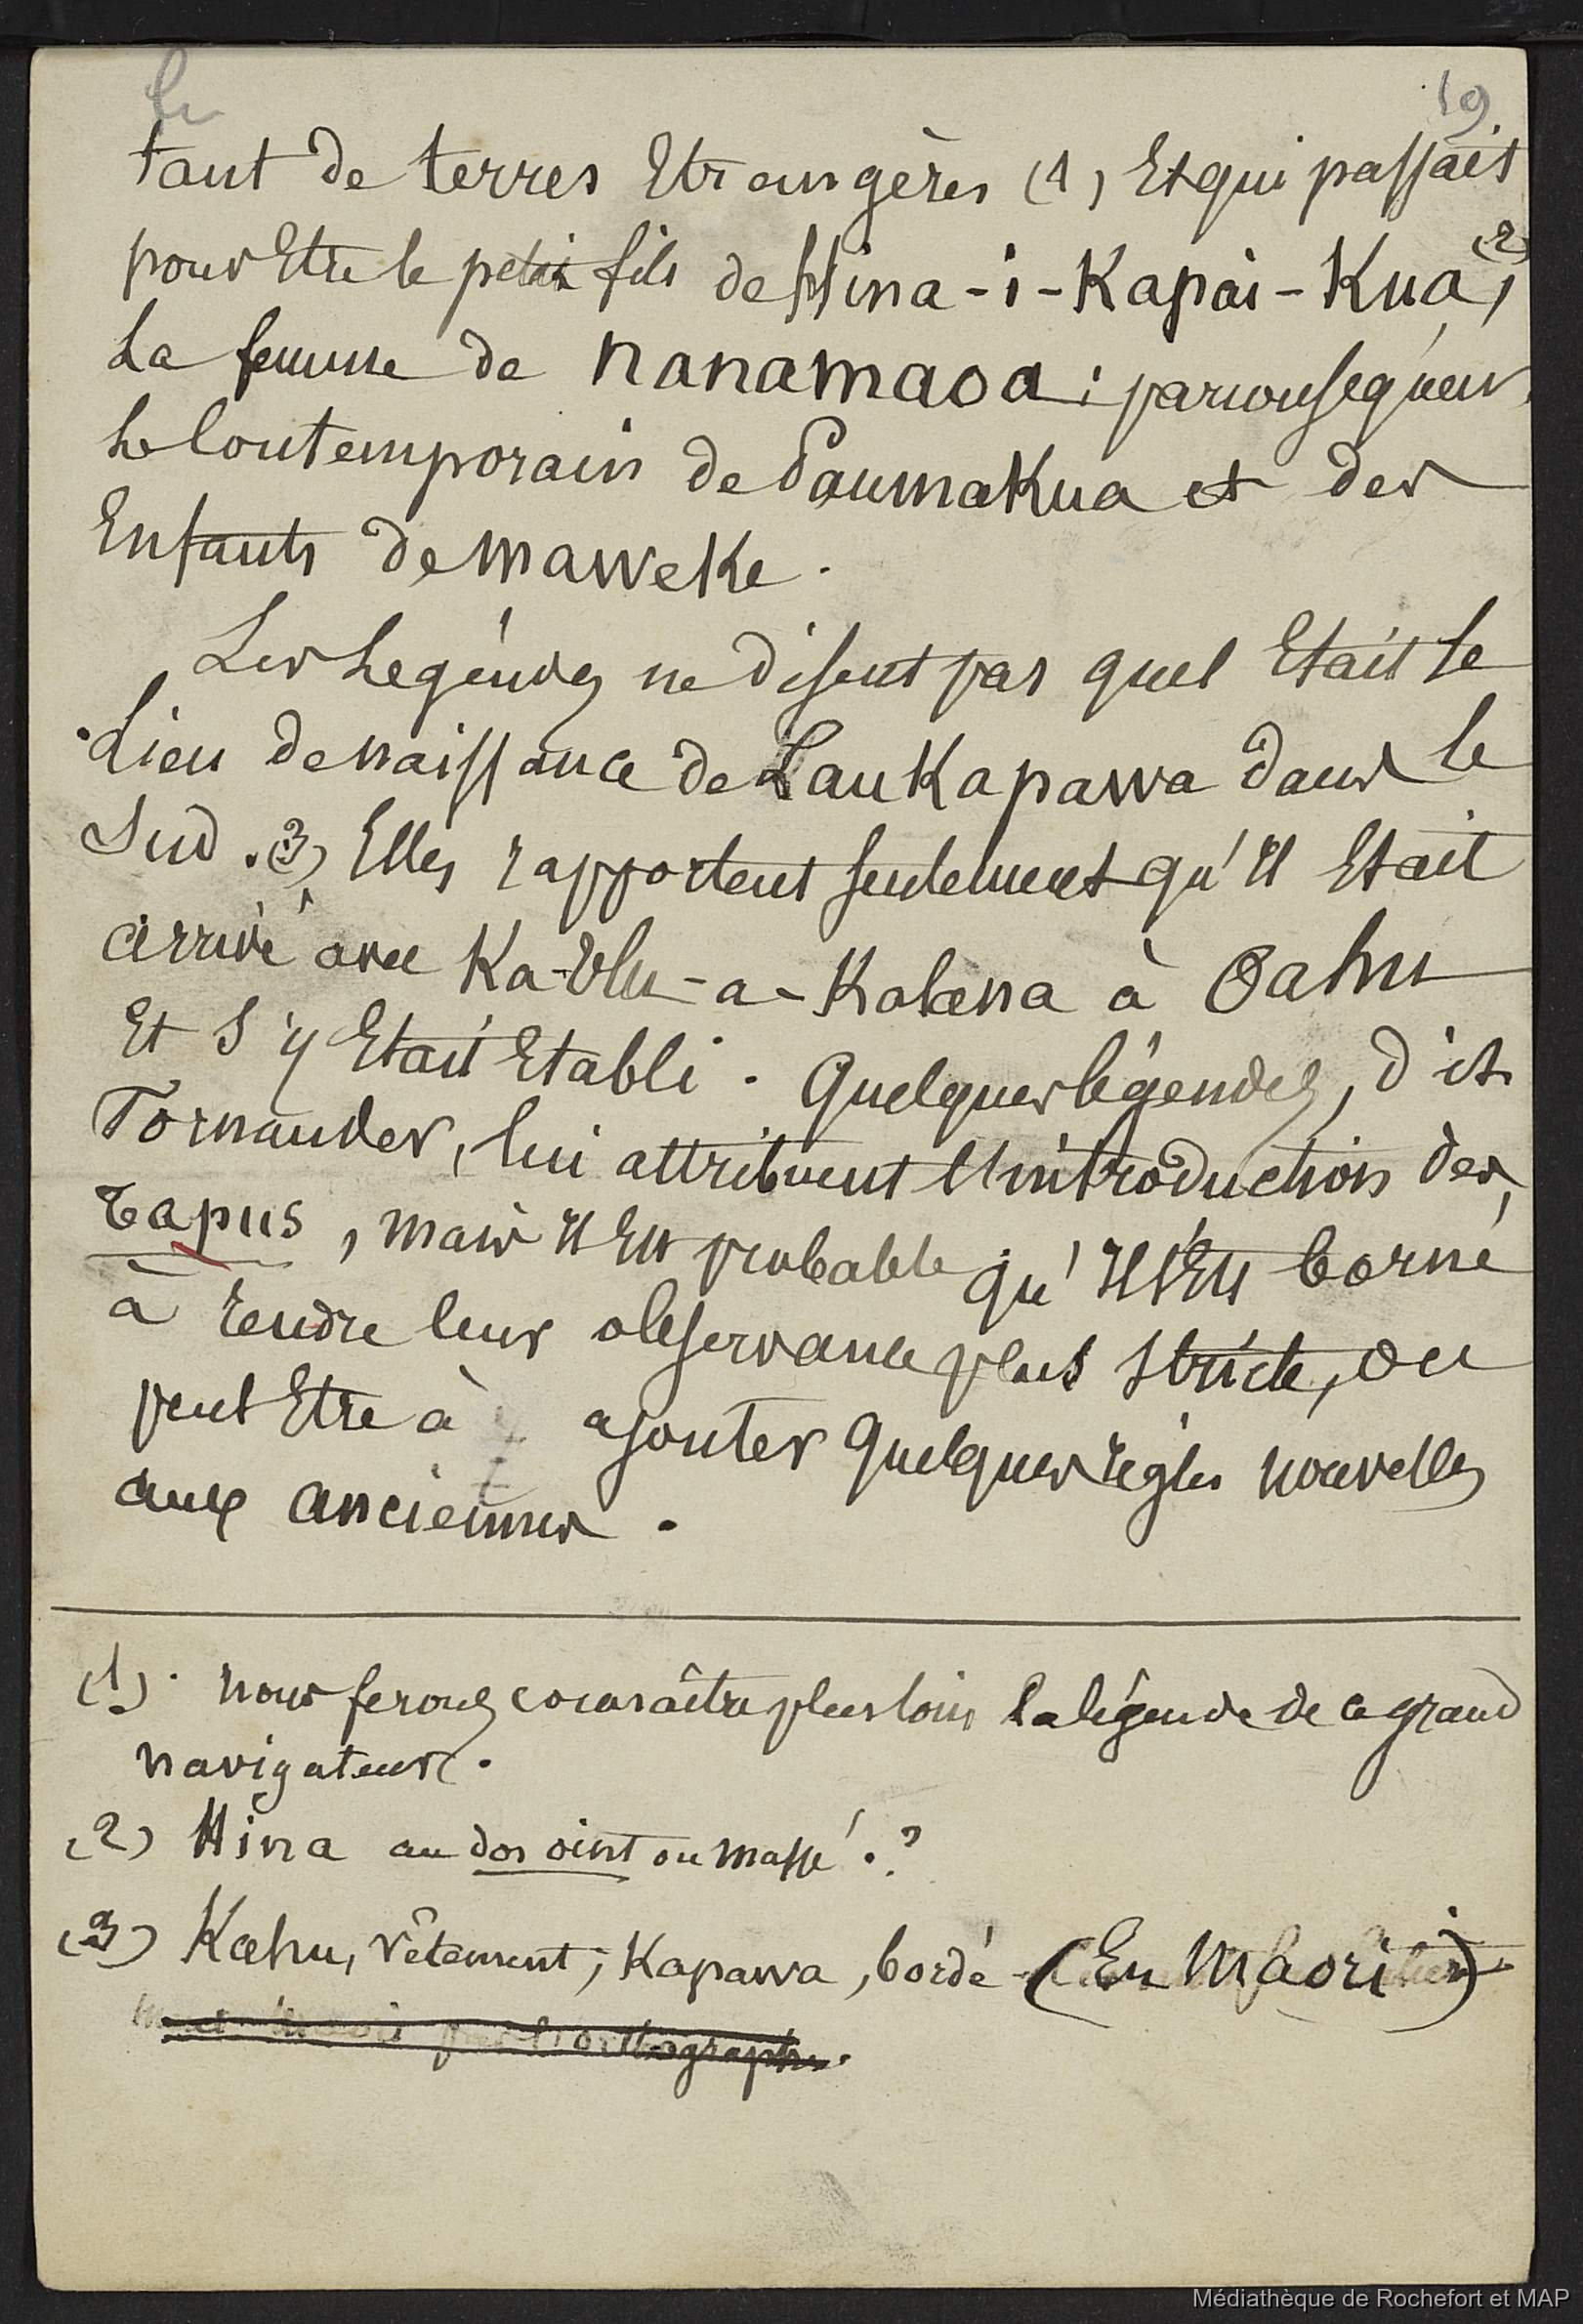 19
tant de terres Etrangères (1) Et qui passait
pour Etre le petit fils de Hina-i-Kapai-Kua, (2)
La femme de nanamaoa; par conséquent
le Contemporain de Paumakua et des
Enfants de maweke.
Les Légendes ne disent pas quel Etait le
Lieu de naissance de LauKapawa dans le
Sud. (3) Elles rapportent seulement qu'Il Etait
arrivé avec Ka-Ulu-a-Kalana à Oahu
Et s'y Etait Etabli. Quelques légendes, dit
Fornander, lui attribuent l'introduction des
Tapus, mais Il Est probable qu'Il s'Est borné
à rendre leur observance plus stricte, ou
peut Etre à ajouter quelques règles nouvelles
aux anciennes.
(1). nous ferons connaître plus loin la légende de ce grand
navigateur.
(2) Hina au dos oint ou massé.?
(3) Kahu, vêtement; Kapawa, bordé (En Maori)
orthographe.
Médiathèque de Rochefort et MAP